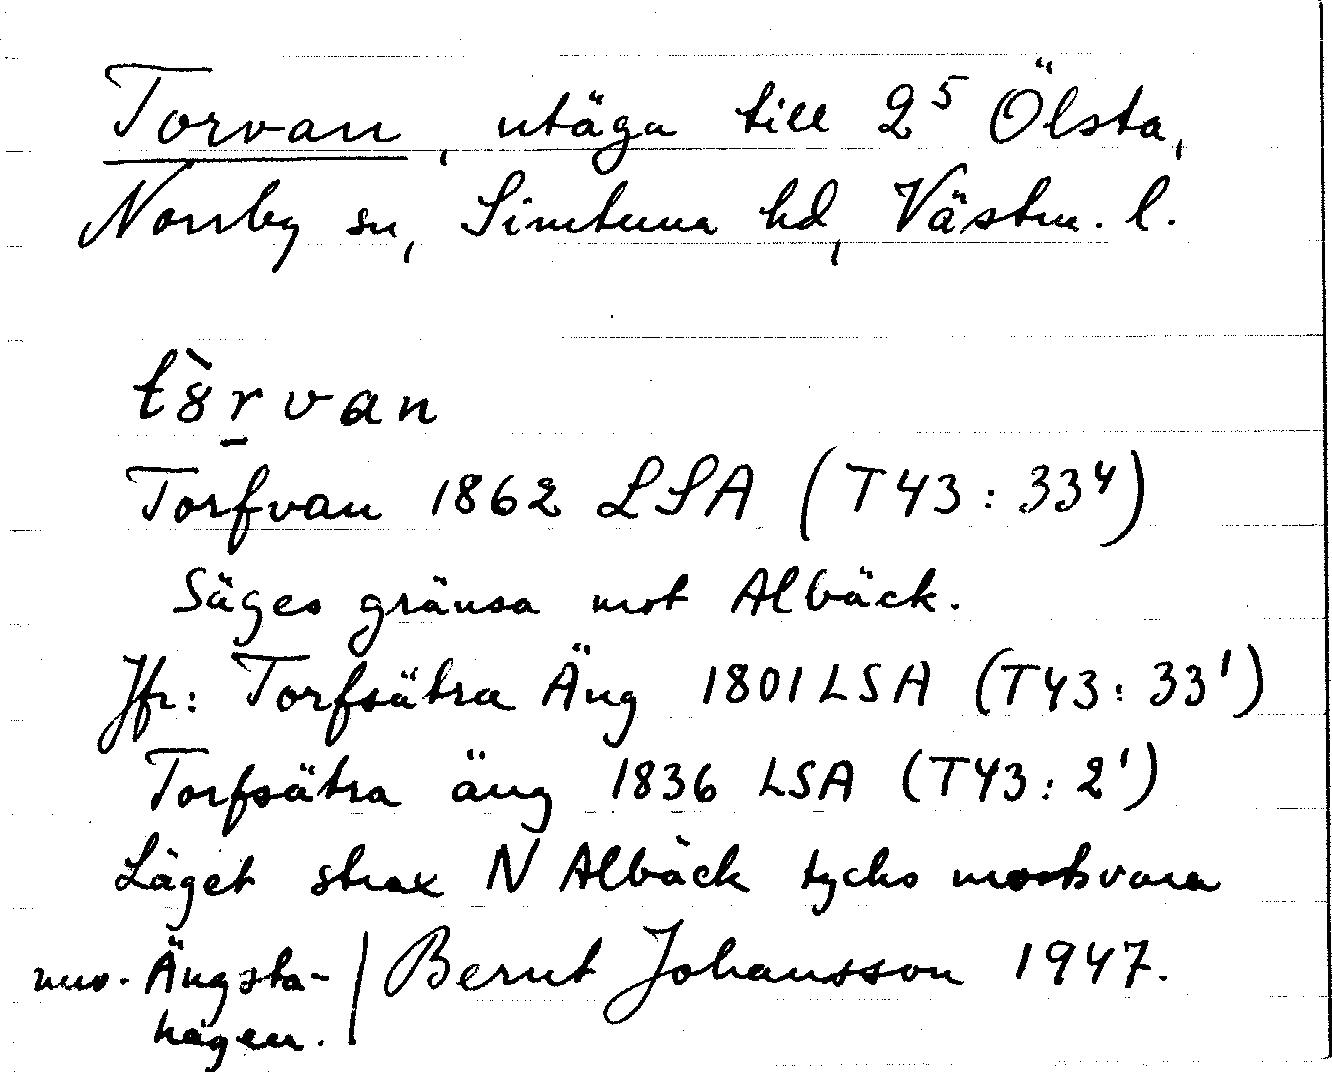 Torvan, utäga till 2⁵ Ölsta,
Norrby sn, Simtuna hd, Västm. l.
tȍ8r̲van
Torfvan 1862 LSA (T43:33⁴)
Säges gränsa mot Albäck.
Jfr: Torfsätra Äng 1801 LSA (T43:33¹)
Torfsätra äng 1836 LSA (T43:2¹)
Läget strax N Albäck tycks motsvara
nuv. Ängsta-
hagen. / Bernt Johansson 1947.